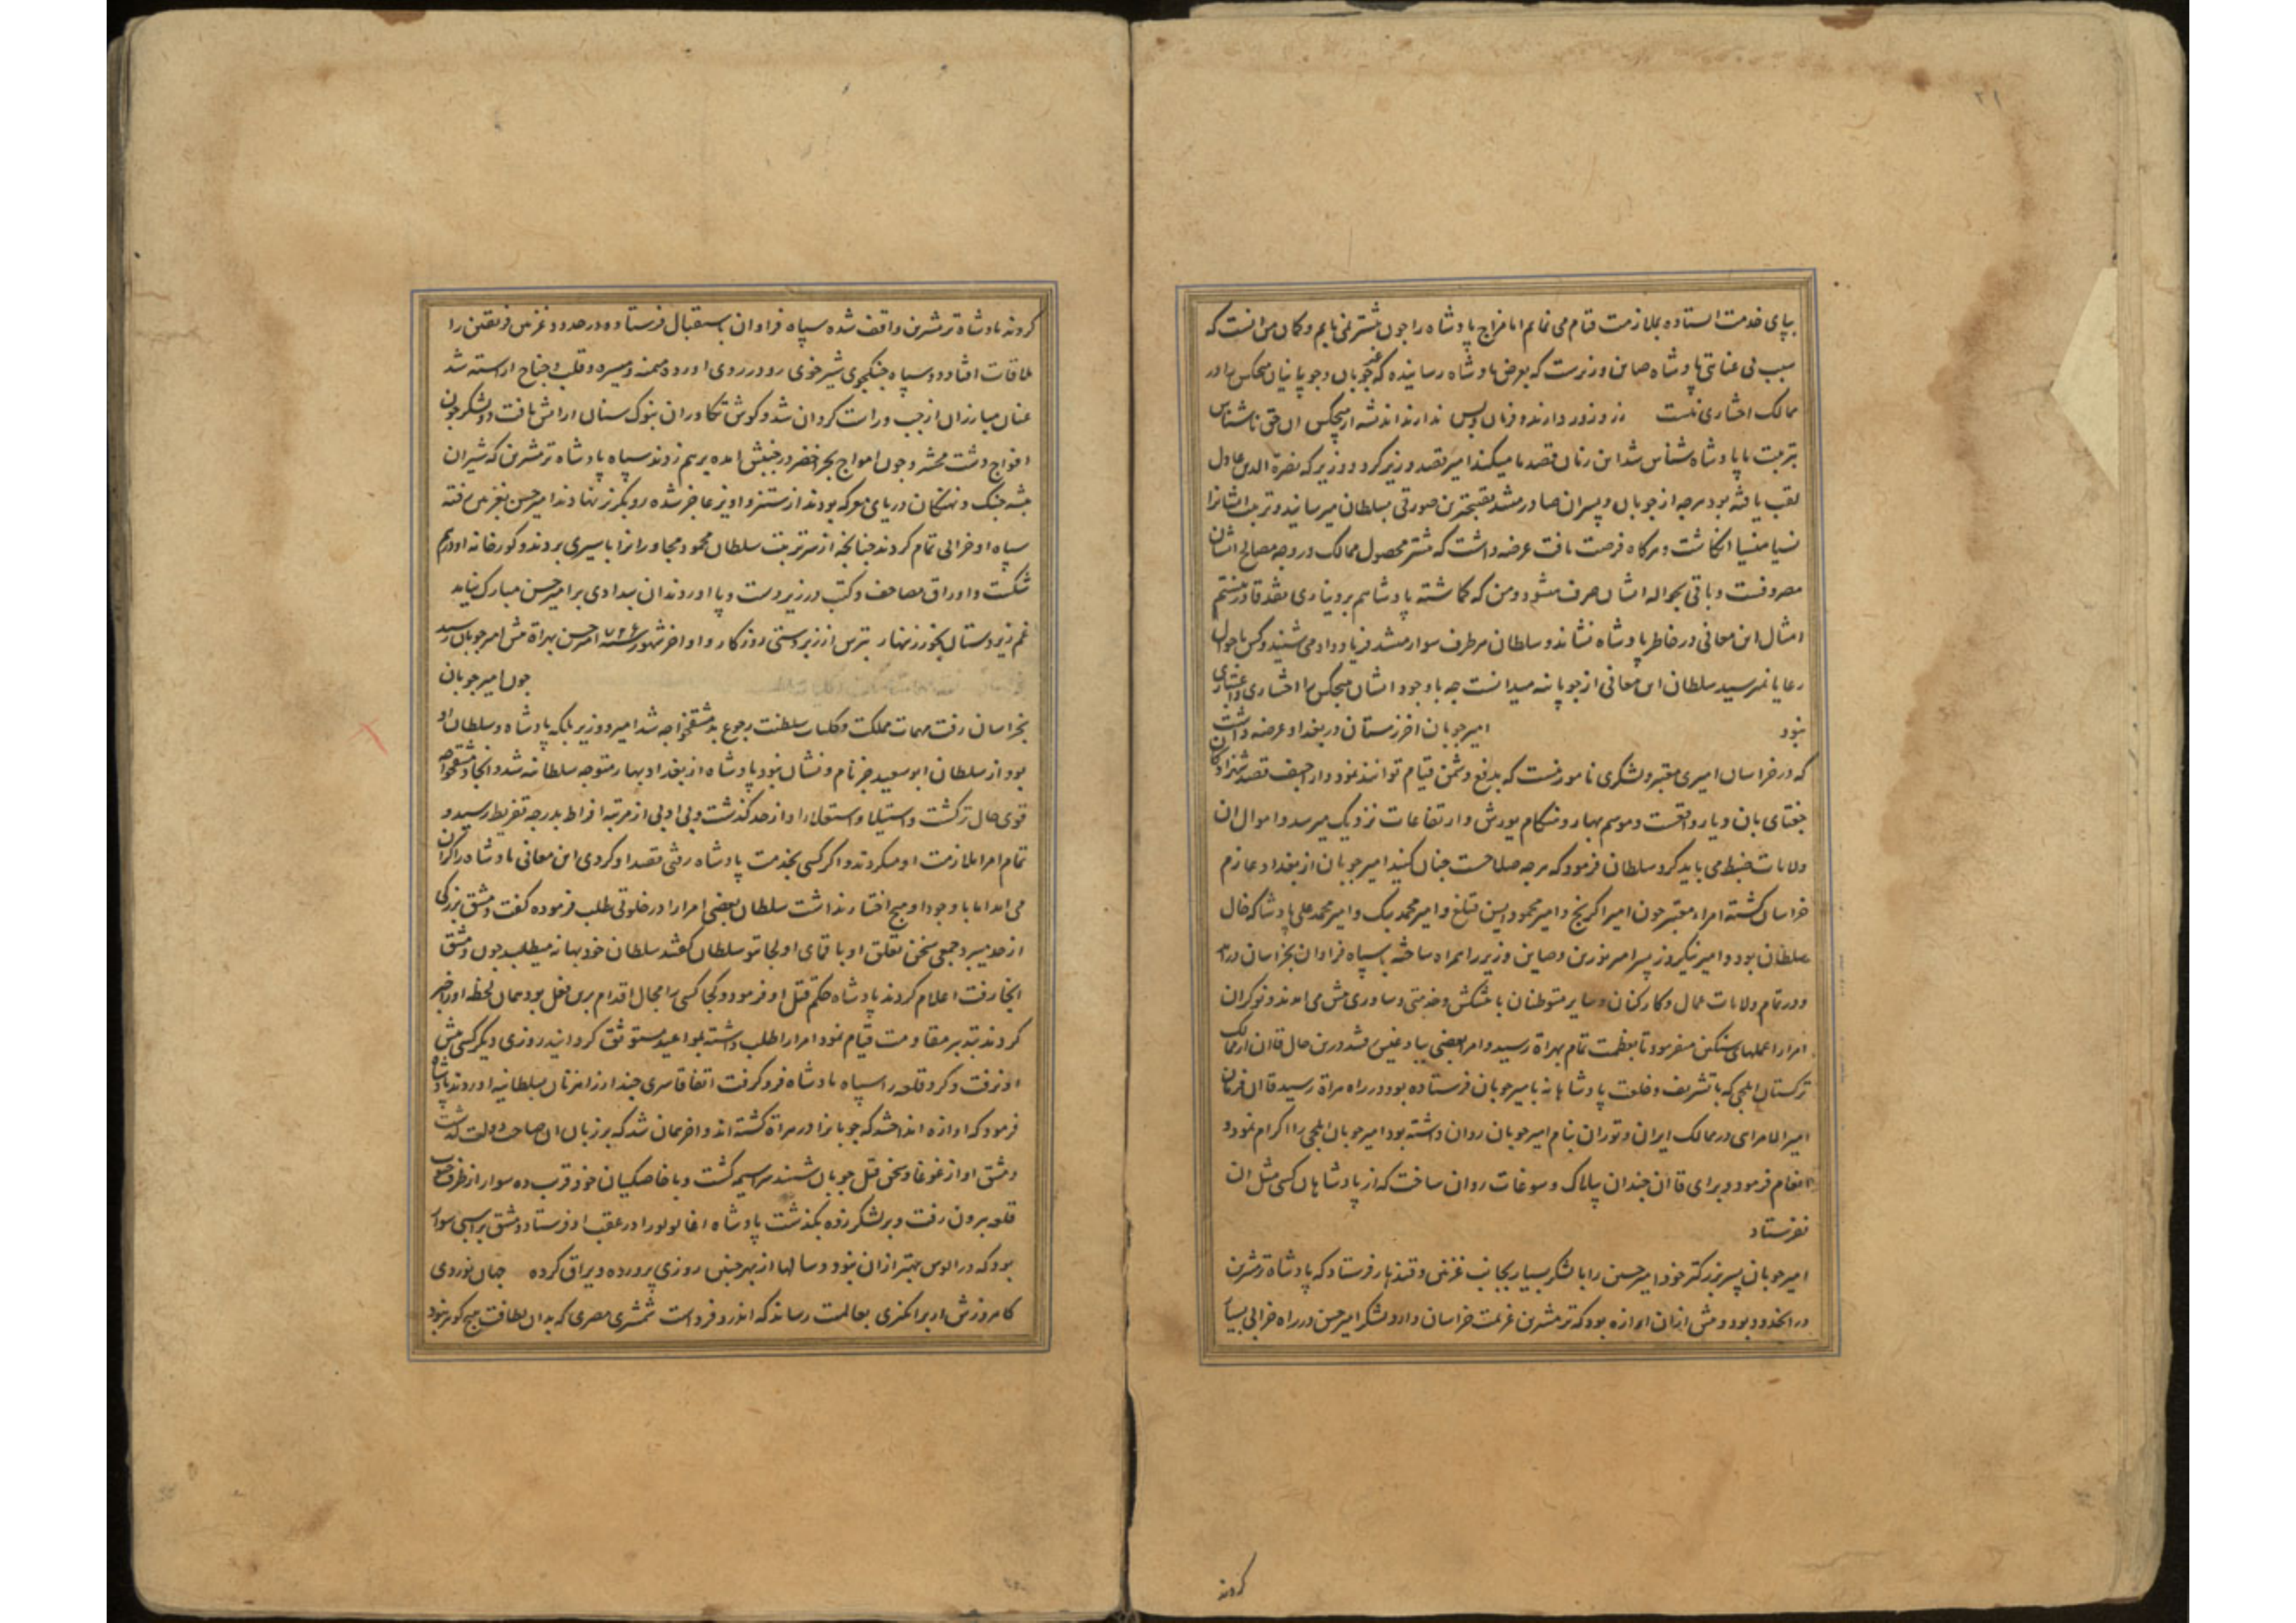 ۲۱
بپای خدمت ایستاده بملازمت قیام می نمایم اما مزاج پادشاه را چون پیشتر نمی یابم و کمان من آنست که
سبب بی عنایتی پادشاه صاین وزیرست که بعرض پادشاه رسانیده که غیر جوبان و جوبانیان هیچکس را در
ممالک اختیاری نیست زر و زور دارند و فرمان و بس ندارند اندیشه از هیچکس آن حق ناشناس
بتربیت ما پادشاه شناس شد این زمان قصد ما میکند امیر قصد وزیر کرد و وزیر که نصرة الدین عادل
لقب یافته بود هرچه از جوبان و پسران صادر میشد بقبیحترین صورتی بسلطان میرسانید و تربیت ایشانرا
نسیا منسیا انکاشت و هرکاه فرصت یافت عرضه داشت که بیشتر محصول ممالک در وجه مصالح ایشان
مصروفست و باقی بحواله ایشان صرف میشود و من که کماشته پادشاهم بر دیناری نقد قادر نیستم
امثال این معانی در خاطر پادشاه نشاند و سلطان هر طرف سوار میشد فریاد و داد می شنید و کس باحوال
رعایا نمیرسید سلطان این معانی از جوبانیه میدانست چه با وجود ایشان هیچکس را اختیاری و اعتباری
نبود امیر جوبان آخر زمستان در بغداد عرضه داشت
که در خراسان امیری معتبر و لشکری نامور نیست که بدفع دشمن قیام توانند نمود و اراجیف قصد شهزادکان
جغتای بان دیار واقعست و موسم بهار و هنکام یورش و ارتفاعات نزدیک میرسد و اموال آن
ولایات ضبط می باید کرد سلطان فرمود که هرچه صلاحست چنان کنید امیر جوبان از بغداد عازم
خراسان کشته امراء معتبر چون امیر اکرنج و امیر محمود ایسن قتلغ و امیر محمد بیک و امیر محمد علی پادشاه که خال
سلطان بود و امیر نیکروز پسر امیر نورین و صاین وزیر را همراه ساخته با سپاه فراوان بخراسان درآمد
و در تمام ولایات عمال و کارکنان و سایر متوطنان با پیشکش و خدمتی و ساوری پیش می آمدند و نوکران
امرا را عملهای سنکین میفرمود تا بعظمت تمام بهراة رسید و امرا بعضی ببادغیس شد درین حال قاآن از ممالک
ترکستان ایلچی که با تشریف و خلعت پادشاهانه بامیر جوبان فرستاده بود در راه هراة رسید قاآن فرمان
امیر الامرایی در ممالک ایران و توران بنام امیر جوبان روان داشته بود امیر جوبان ایلچی را اکرام نمود و
انعام فرمود و برای قاآن چندان بیلاک و سوغات روان ساخت که از پادشاهان کسی مثل آن
نفرستاد
امیر جوبان پسر بزرکتر خود امیر حسین را با لشکر بسیار بجانب غزنین و قندهار فرستاد که پادشاه ترمشرین
در آن حدود بود و پیش ازان آوازه بود که ترمشرین عزیمت خراسان دارد لشکر امیر حسن در راه خرابی بسیار
کردند
کردند پادشاه ترمشرین واقف شده سپاه فراوان باستقبال فرستاده در حدود غزنین فریقین را
ملاقات افتاد دو سپاه جنکجوی شیرخوی رو در روی آورده میمنه و میسره و قلب و جناح آراسته شد
عنان مبارزان از چپ و راست کردان شد و کوش تکاوران بنوک سنان آرایش یافت دو لشکر چون
افواج دشت محشر و چون امواج بحر اخضر در جنبش آمده برهم زدند سپاه پادشاه ترمشرین که شیران
بیشه جنک و نهنکان دریای معرکه بودند از ستیز و آویز عاجز شده رو بکریز نهادند امیر حسن بغزنین رفته
سپاه او خرابی تمام کردند چنانچه از سر تربت سلطان محمود مجاورانرا باسیری بردند و کورخانه او درهم
شکست و اوراق مصاحف و کتب در زیر دست و پا آوردند آن بیدادی بر امیر حسن مبارک نیامد
غم زیردستان بخور زینهار بترس از زبردستی روزکار و اواخر شهور سنه ۷۲۶ امیر حسن بهراة پیش امیر جوبان رسید
چون امیر جوبان
بخراسان رفت مهمات مملکت و کلیات سلطنت رجوع بدمشق خواجه شد امیر و وزیر بلکه پادشاه و سلطان او
بود از سلطان ابو سعید جز نام و نشان نبود پادشاه از بغداد بهار متوجه سلطانیه شد و آنجا دمشق خواجه
قوی حال تر کشت و استیلا و استقلال او از حد کذشت و بی ادبی از مرتبه افراط بدرجه تفریط رسید و
تمام امرا ملازمت او میکردند و اکر کسی بخدمت پادشاه رفتی قصد او کردی این معانی پادشاه را کران
می آمد اما با وجود او هیچ اختیار نداشت سلطان بعضی امرا را در خلوتی طلب فرموده کفت دمشق بزرکی
از حد میبرد جمعی سخن تعلق او با قمای اولجایتو سلطان کفتند سلطان خود بهانه میطلبید چون دمشق
آنجا رفت اعلام کردند پادشاه حکم قتل او فرمود و کجا کسی را مجال اقدام برین فعل بود همان لحظه او را خبر
کردند بتدبیر مقاومت قیام نمود امرا را طلب داشته بمواعید مستوثق کردانید روزی دیکر کسی پیش
او نرفت و کرد قلعه را سپاه پادشاه فرو کرفت اتفاقا سری چند از رهزنان بسلطانیه آوردند پادشاه
فرمود که آوازه انداختند که جوبانرا در هراة کشته اند و آخر همان شد که بر زبان آن صاحب دولت کذشت
دمشق آواز غوغا و سخن قتل جوبان شنید سراسیمه کشت و با خاصکیان خود قرب ده سوار از طرف جنوب
قلعه بیرون رفت و بر لشکر زده بکذشت پادشاه اغا لولو را در عقب او فرستاد دمشق بر اسبی سوار
بود که در الوس بهتر ازان نبود و سالها از بهر چنین روزی پرورده و یراق کرده جهان نوردی
کامروزش ار برانکیزی بعالمیت رساند که اندرو فرداست شمشیری مصری که بدان لطافت هیچ کوهر نبود